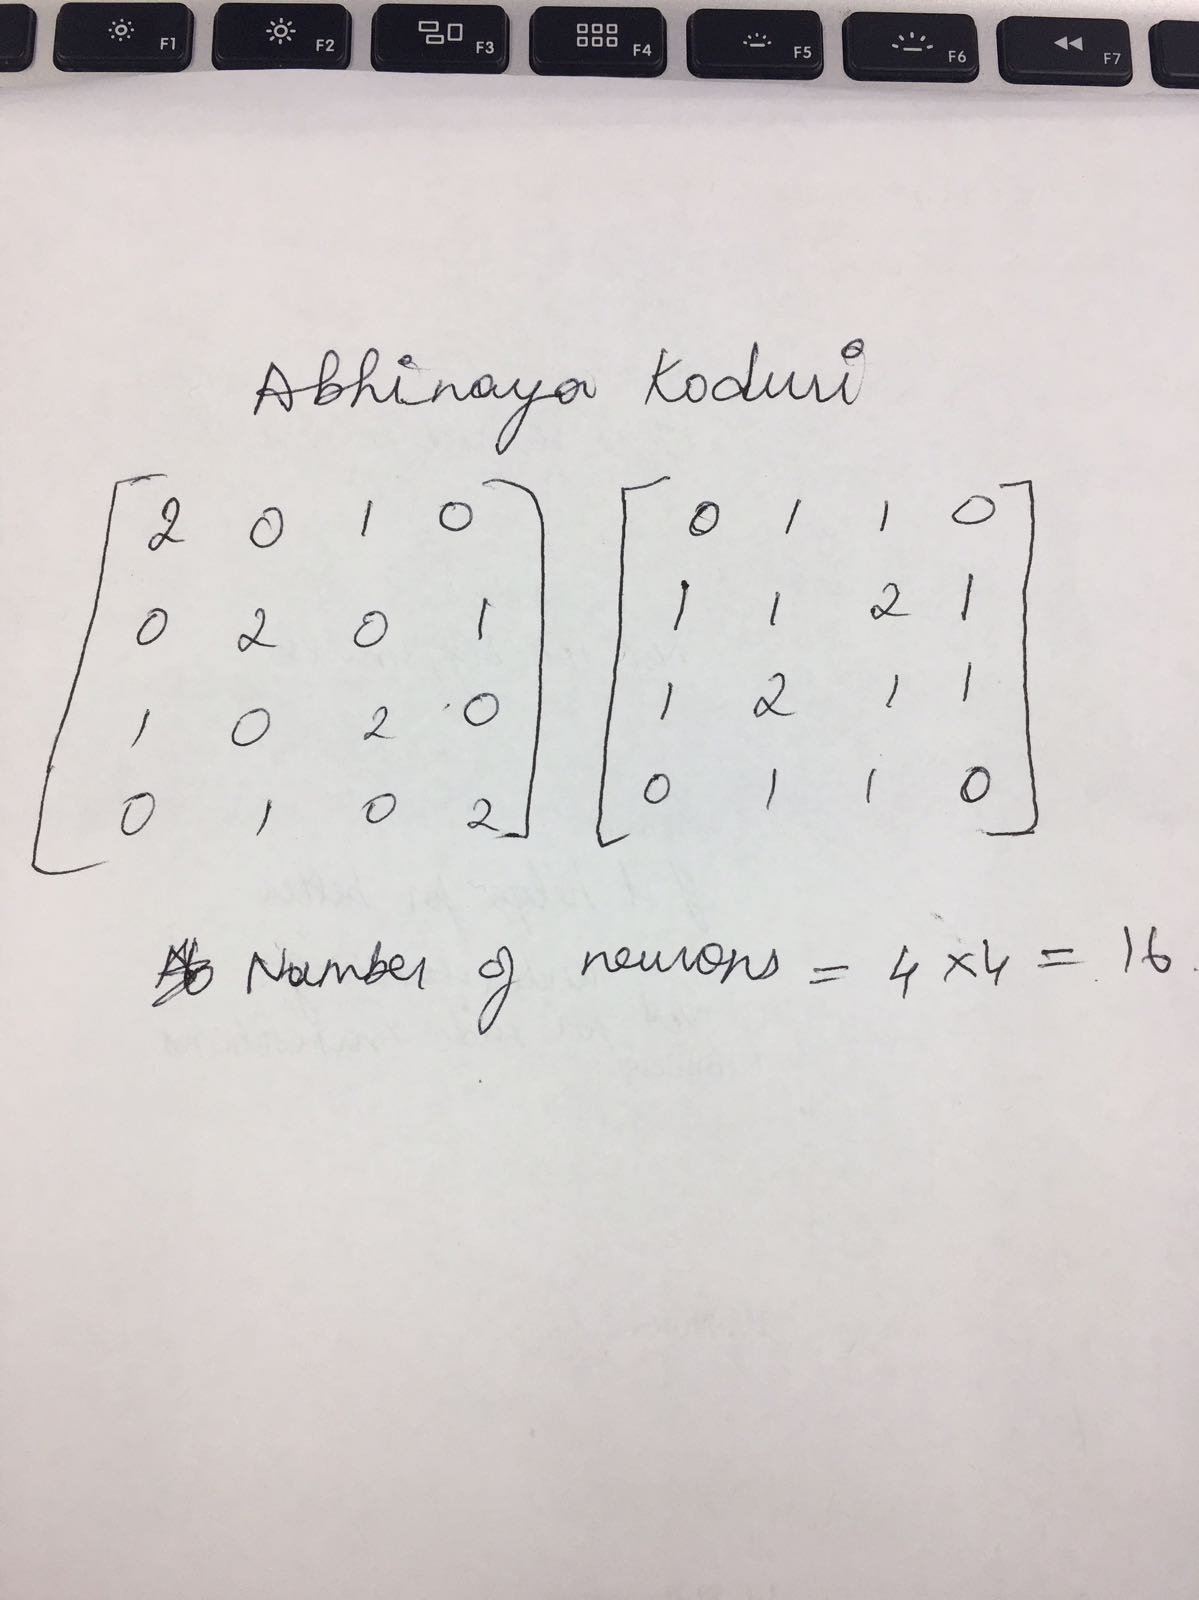 F1 F2 F3 F4 F5 F6 F7
Abhinaya Koduri
2 0 1 0 0 1 1 0
0 2 0 1 1 1 2 1
1 0 2 0 1 2 1 1
0 1 0 2 0 1 1 0
Number of neurons = 4 × 4 = 16